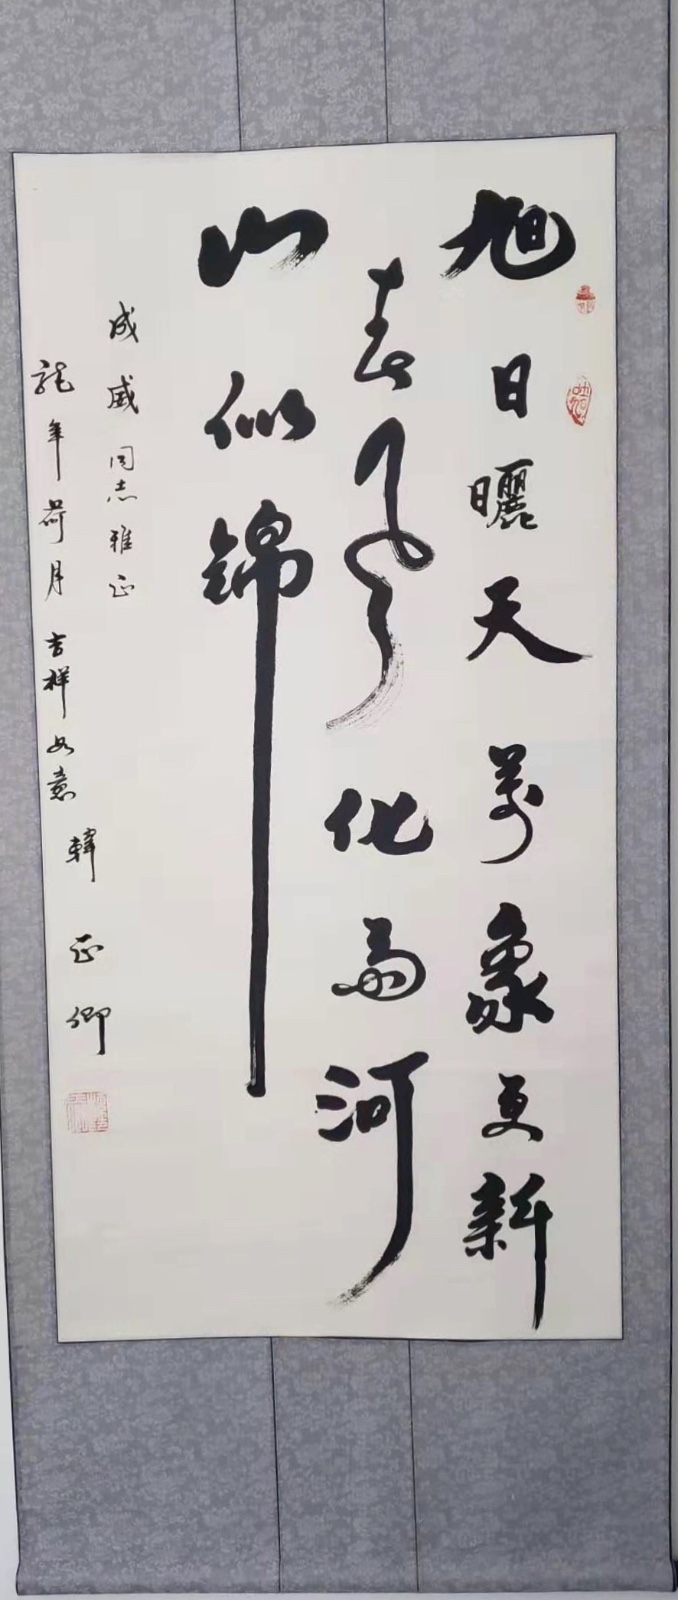 旭日曬天萬象更新
春風化雨河
山似錦
成威同志雅正
龍年荷月吉祥如意韓正卿